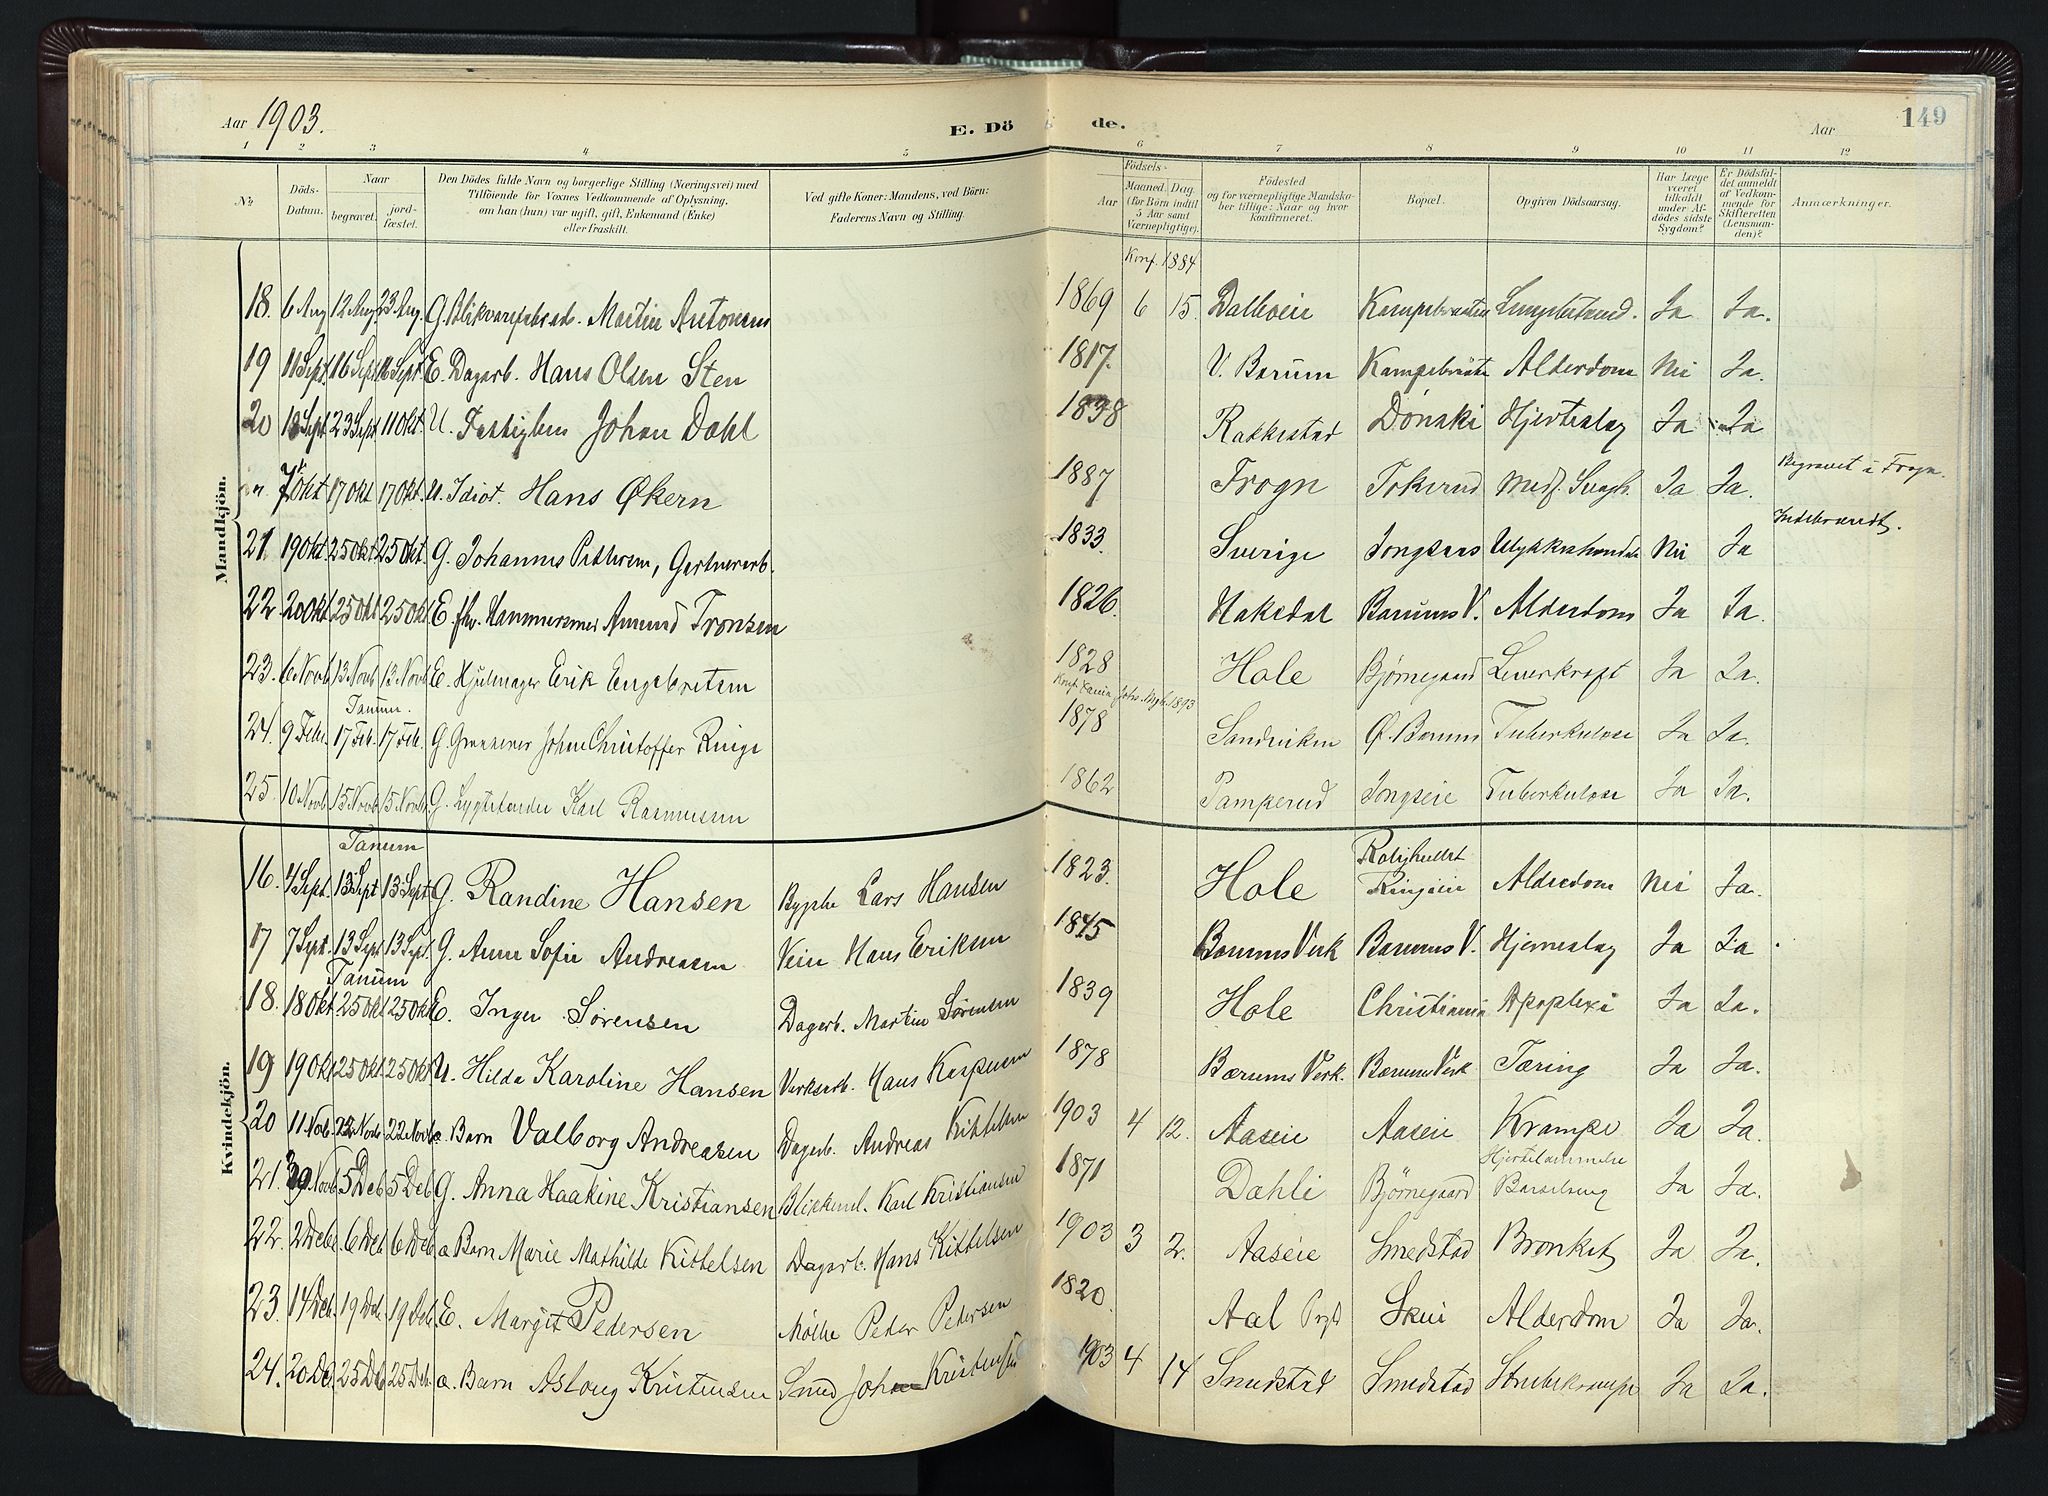 Aar 1903.
E. Dö de.
Aar
149
1 2 3 4 5 6 7 8 9 10 11 12
No.
Döds-
Datum.
Naar
begravet.
jord-
fæstet.
Den Dödes fulde Navn og borgerlige Stilling (Næringsvei) med
Tilföiende for Voxnes Vedkommende af Oplysning,
om han (hun) var ugift, gift, Enkemand (Enke)
eller fraskilt.
Ved gifte Koner: Mandens, ved Börn:
Faderens Navn og Stilling.
Födsels-
Aar
Maaned. Dag.
(for Börn indtil
5 Aar samt
Værnepligtige).
Födested
og for værnepligtige Mandsko-
ber tillige: Naar og hvor
konfirmeret.
Bopæl.
Opgiven Dödsaarsag.
Har Læge
været
tilkaldt
under Af-
dödes sidste
Sygdom?
Er Dödsfal-
det anmeldt
af Vedkom-
mende for
Skifteretten
(Lensman-
den)?
Anmærkninger.
Mandkjön.
Konf. 1884
18. 6 Aug 12 Aug. 23 Aug. G. Martin Antonsen 1869 6 15. Dalbveie Ja Ja.
19 11 Sept. 16 Sept. 16 Sept. E. Dagarb. Hans Olsen Sten 1817. V. Bærum Alderdom Nei Ja.
20 18 Sept. 23 Sept 11 Okt. U. Johan Dahl 1838 Rakkestad Dønski Hjerteslag Ja Ja
7 Okt 17 Okt 17 Okt. U. Idiot. Hans Økern 1887 Frogn Tokerud Medf. Svagh. Ja Ja. Begravet i Frogn.
21. 19 Okt. 25 Okt 25 Okt. G. Johannes Pettersen, Gartnerarb. 1833. Sverige Jongsaas Ulykkeshændelse Nei Ja Indebrændt.
22. 20 Okt 25 Okt 25 Okt. E. fhv. Hammersmed Amund Tronsen 1826. Hakedal Bærums V. Alderdom Ja Ja.
23. 6 Novb. 13 Novb 13 Novb. E. Hjulmager Erik Engebretsen 1828 Hole Bjørnegaard Leverkræft Ja Ja.
Tanum.
Konf. Johs. Mgh. 1893
24. 9 Febr. 17 Feb. 17 Feb. G. Johan Christoffer Ringe 1878 Sandviken Ø. Bærum Tuberkulose Ja Ja.
25. 10 Novb 15 Novb 15 Novb. G. Lygtetænder Karl Rasmussen 1862 Pamperud Jongseie Tuberkulose Ja Ja.
Kvindekjön.
Tanum
16. 4 Sept. 13 Sept 13 Sept G. Randine Hansen Lars Hansen 1823. Hole Rolighedst Ringieie Alderdom Nei Ja.
17 7 Sept. 13 Sept 13 Sept. G. Anne Sofie Andreasen Hans Eriksen 1845 Bærums Verk Bærums V. Hjerneslag Ja Ja.
Tanum
18. 18 Okt 25 Okt 25 Okt E. Inger Sørensen Dagarb. Martin Sørensen 1839 Hole Christiania Apoplexi Ja Ja.
19 19 Okt 25 Okt. 25 Okt U. Hilda Karoline Hansen Verksarb. Hans Kaspersen 1878 Bærums Verk. Bærums Verk Tæring Ja Ja.
20 11 Nob. 22 Novb 22 Novb. a. Barn Valborg Andreasen Dagarb. Andreas Kittelsen 1903 4 12. Aaseie Aaseie Krampe Ja Ja.
Hjertelammelse
21. 30 Novb. 5 Deb. 5 Deb. G. Anna Haakine Kristiansen Blikkensl. Karl Kristiansen 1871 Dæhli Bjørnegaard Barselseng Ja Ja.
22. 2 Deb. 6 Deb 6 Deb. a Barn Marie Mathilde Kittelsen Dagarb. Hans Kittelsen 1903 3 2. Aaseie Smedstad Bronket Ja Ja.
23. 14 Deb. 19 Deb. 19 Deb. E. Margit Pedersen Peder Pedersen 1820. Aal Skui Alderdom Ja Ja.
24. 20 Deb. 25 Deb 25 Deb. a. Barn Aslaug Kristensen Smed Johan Kristensen 1903 4 14 Smedstad Smedstad Strubekrampe Ja Ja.